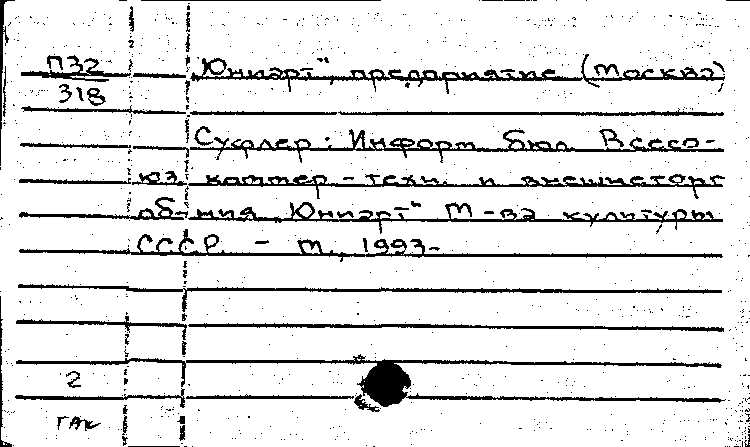 П32
318
"Юниарт", предприятие (Москва)
Суфлер : Информ. бюл. Всесо-
юз. коммер.-техн. и внешнеторг
об-ния "Юниарт" М-ва культуры
СССР. - М., 1993-
2